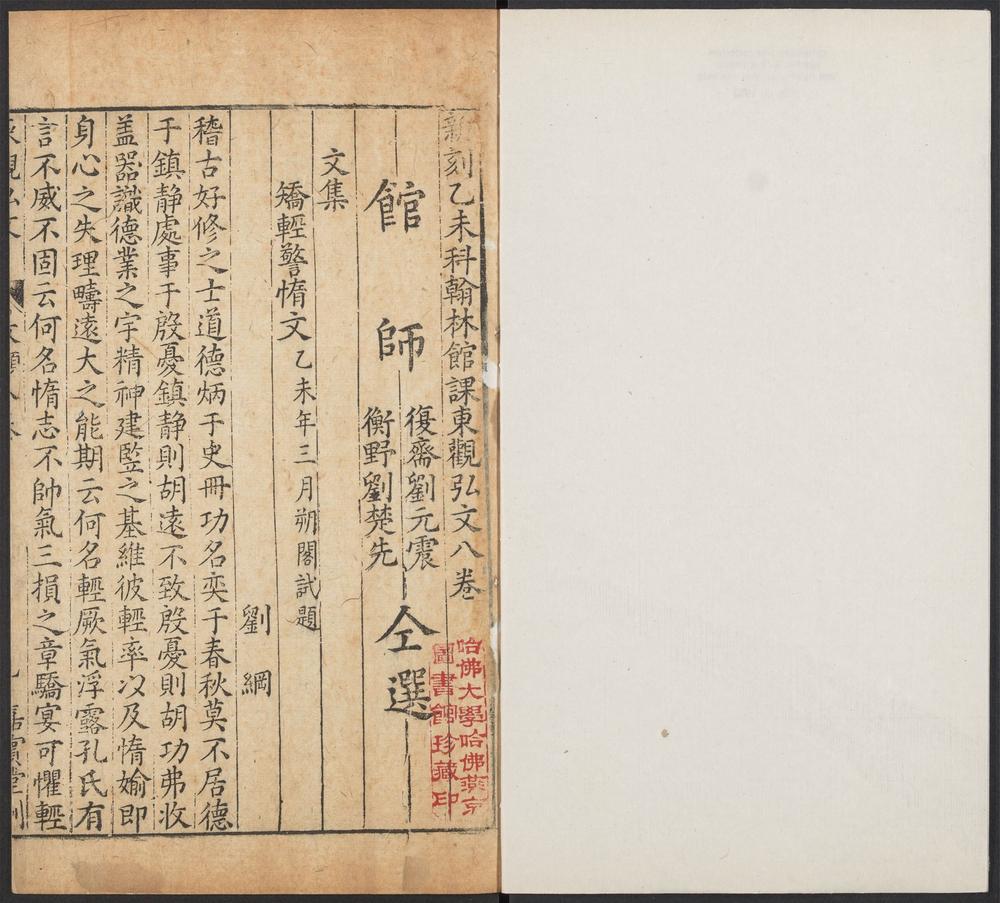 新刻乙未科翰林館課東觀弘文八卷
館師
復齋劉元震
衡野劉楚先
仝選
哈佛大學哈佛燕京
圖書館珍藏印
文集
矯輕警惰文乙未年三月朔閣試題
劉綱
稽古好修之士道德炳于史冊功名奕于春秋莫不居德
于鎮静處事于殷憂鎮静則胡遠不致殷憂則胡功弗收
盖器識德業之宇精神建竪之基維彼輕率以及惰媮即
身心之失理疇遠大之能期云何名輕厥氣浮露孔氏有
言不威不固云何名惰志不帥氣三損之章驕宴可懼輕